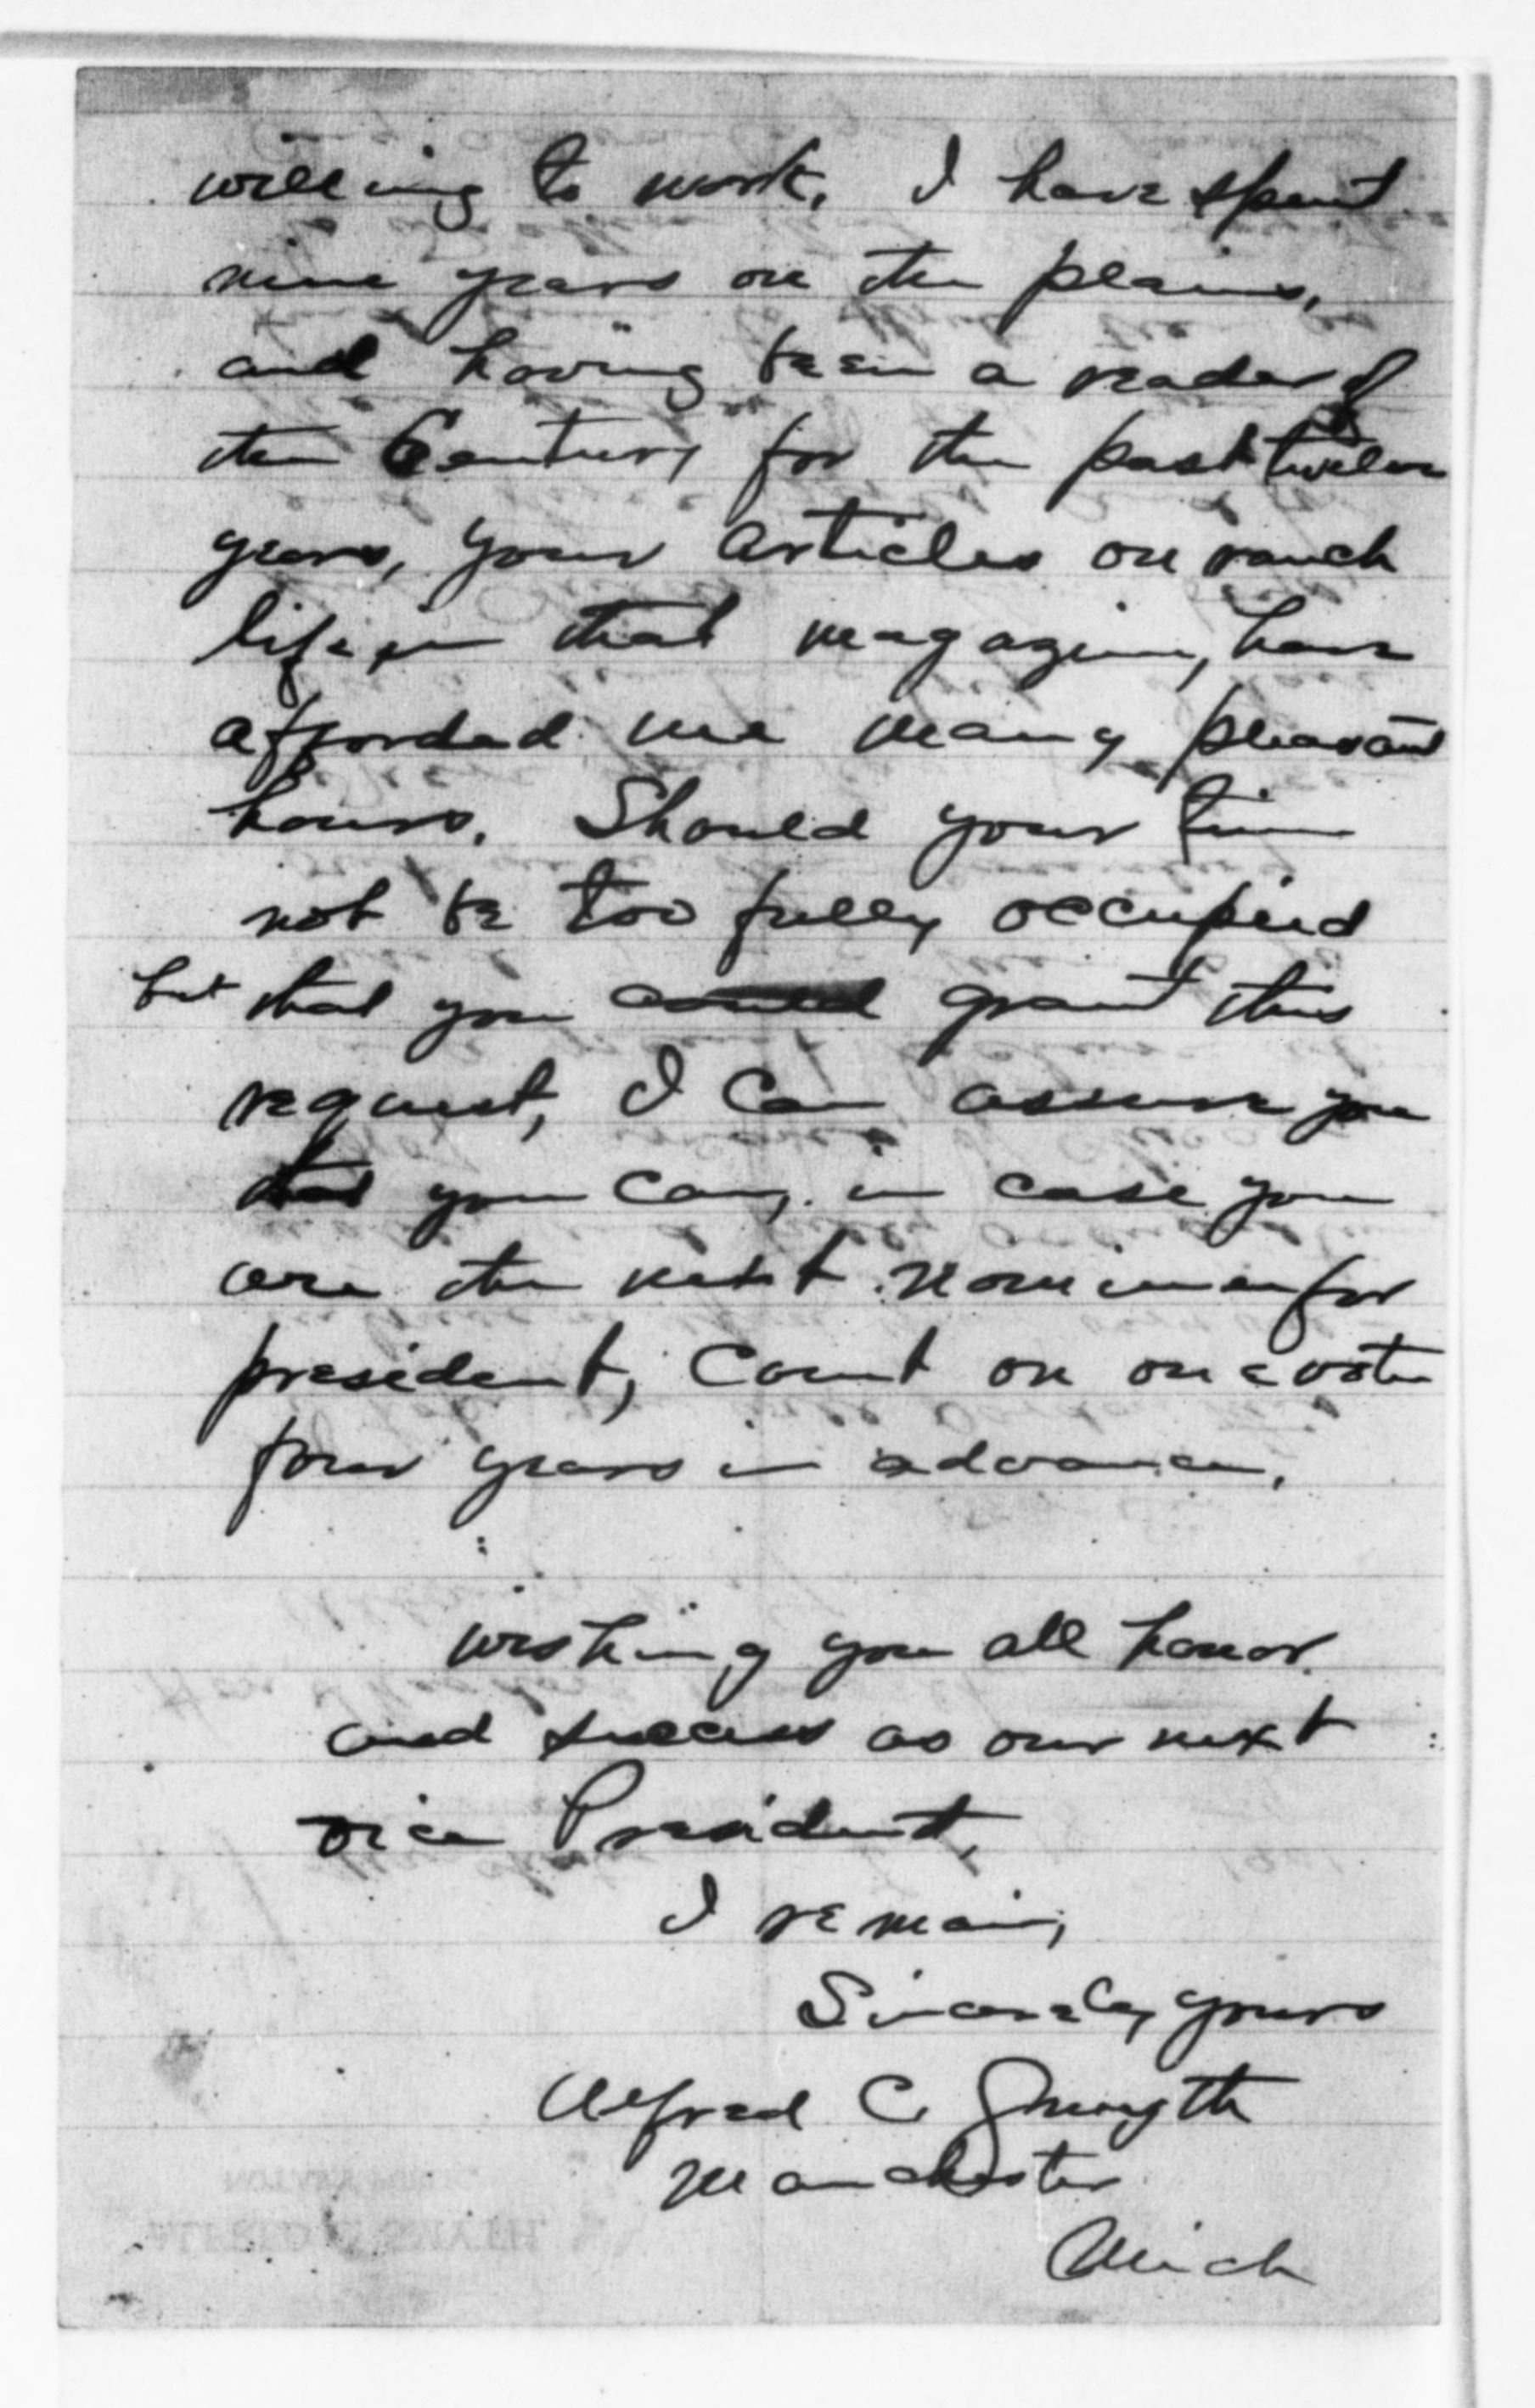 willing to work. I have spent
nine years on the plains,
and having been a reader of
the Century for the past twelve
years, your articles on ranch
life in that magazine, have
afforded me many pleasant
hours. Should your time
not be too fully occupied
but that you could grant this
request, I can assure you
that you can, in case you
are the next nominee for
president, count on one vote
four years in advance.
wishing you all honor
and success as our next
vice President,
I remain,
Sincerely yours
Alfred C. Smyth
Manchester
Mich